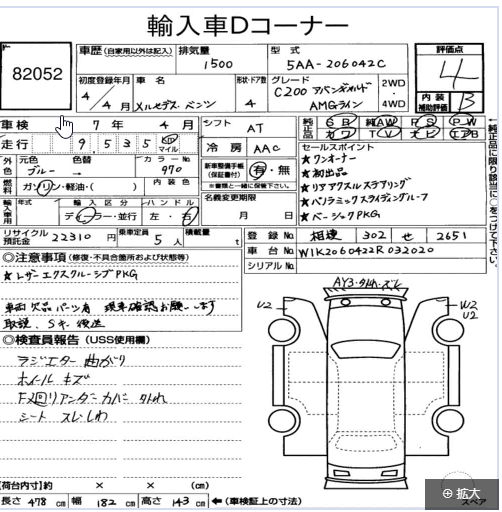 輸入車Dコーナー
82052
車歴 (自家用以外は記入)
排気量
1500
型式
5AA-206042C
評価点
4
初度登録年月
4/4月
車名
メルセデス ベンツ
形状・ドア数
4
グレード
C200 アバンギャルド
AMGライン
2WD
・
4WD
内装
補助評価
B
車検
7年
4月
シフト
AT
純正品
SR 純AW PS PW
カワ TV ナビ エアB
走行
9,535
km
マイル
冷房
AAC
セールスポイント
★ワンオーナー
★初出品
★リアアクスルステアリング
★パノラミックスライディングルーフ
★ベーシックPKG
←純正品に限り該当に○をつけて下さい。
外色
元色
ブルー →
色替
カラーNo
970
新車整備手帳
(保証書付)
有・無
※書類と一緒に保管下さい。
燃料
ガソリン・軽油・( )
内装色
名義変更期限
月 日
輸入車用
年式
輸入区分
ディーラー・並行
ハンドル
左・右
リサイクル
預託金
22310 円
乗車定員
5人
積載量
t
登録No
相模 302 せ 2651
車台No
W1K2060422R032020
シリアルNo
◎注意事項 (修復・不具合箇所および状態等)
★レザーエクスクルーシブPKG
車両欠品パーツ有 現車確認お願いします
取説、Sキー後送
AY3・タオレ・ズレ
U2
W2
U2
◎検査員報告 (USS使用欄)
ラジエター曲がり
ホイールキズ
F廻りアンダーカバー外れ
シート スレ・しわ
【荷台内寸】約 × × (cm)
長さ 478 cm 幅 182 cm 高さ 143 cm ←(車検証上の寸法)
スペア
拡大